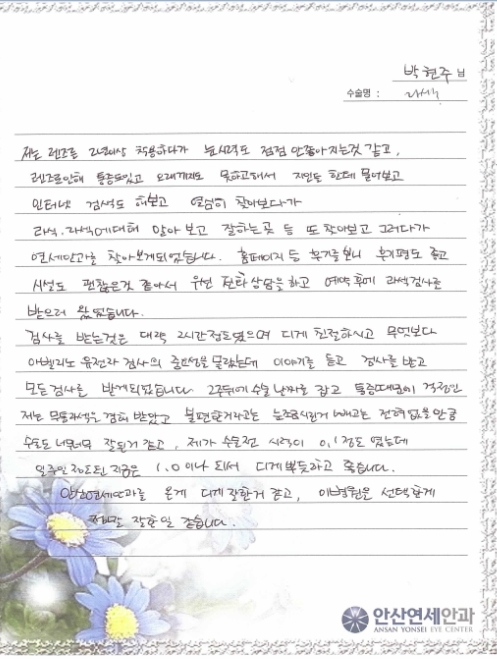 박현주 님
수술명 : 라섹
저는 렌즈를 2년이상 착용하다가 눈시력도 점점 안좋아 지는것 같고,
렌즈로인해 통증도있고 오래끼지도 못하고해서 지인들 한테 물어보고
인터넷 검색도 해보고 열심히 찾아보다가
라식.라섹에대해 알아 보고 잘하는곳 등 또 찾아보고 그러다가
연세안과를 찾아보게되었습니다. 홈페이지 등 후기를 보니 후기평도 좋고
시설도 괜찮은것 같아서 우선 전화상담을하고 예약후에 라섹검사를
받으러 왔었습니다.
검사를 받는것은 대략 2시간정도였으며 되게 친절하시고 무엇보다
아벨리노 유전자 검사의 중요성을 몰랐는데 이야기를 듣고 검사를 받고
모든검사를 받게되었습니다. 2주뒤에 수술 날짜를 잡고 통증때문에 걱정인
저는 무통라섹을 받았고 불편한거라고는 눈조금시린거 빼고는 전혀 없을 만큼
수술도 너무너무 잘된거 같고, 제가 수술전 시력이 0.1정도 였는데
일주일정도된 지금은 1.0이나 되서 되게뿌듯하고 좋습니다.
안산연세안과를 온게 되게 잘한거 같고, 이병원을 선택한게
정말 잘한일 같습니다.
안산연세안과
ANSAN YONSEI EYE CENTER